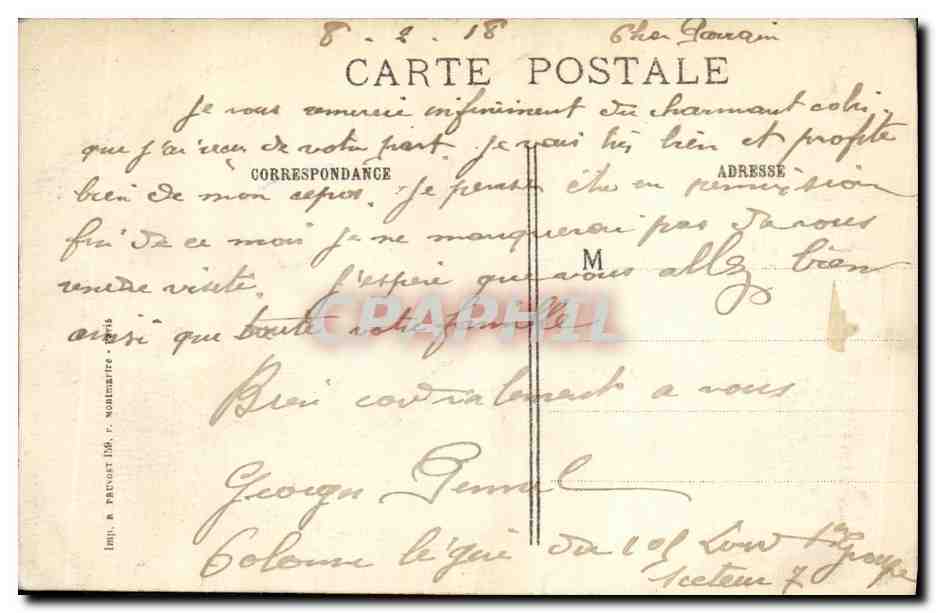 8 - 2 - 18 Cher Parrain
CARTE POSTALE
Je vous remercie infiniment du charmant colis
que j'ai reçu de votre part. Je vais très bien et profite
CORRESPONDANCE ADRESSE
bien de mon repos. Je pense être en permission
fin de ce mois je ne manquerai pas de vous
M
rendre visite. J'espère que vous allez bien
CPAPHIL
ainsi que toute votre famille
Bien cordialement a vous
Georges
Colonne légère du 101 Lourd 1er Groupe
Secteur 7
Imp. A PRUVOST 159, r. Montmartre - Paris